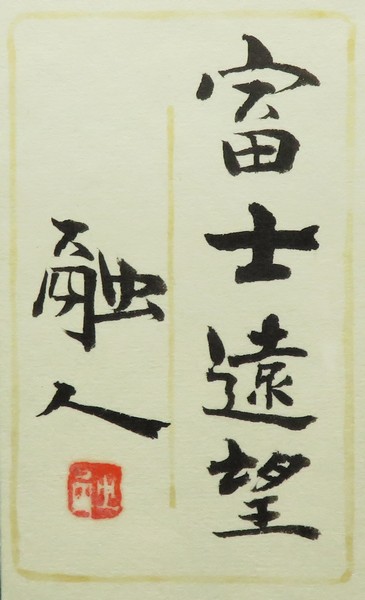 富士遠望
融人
融